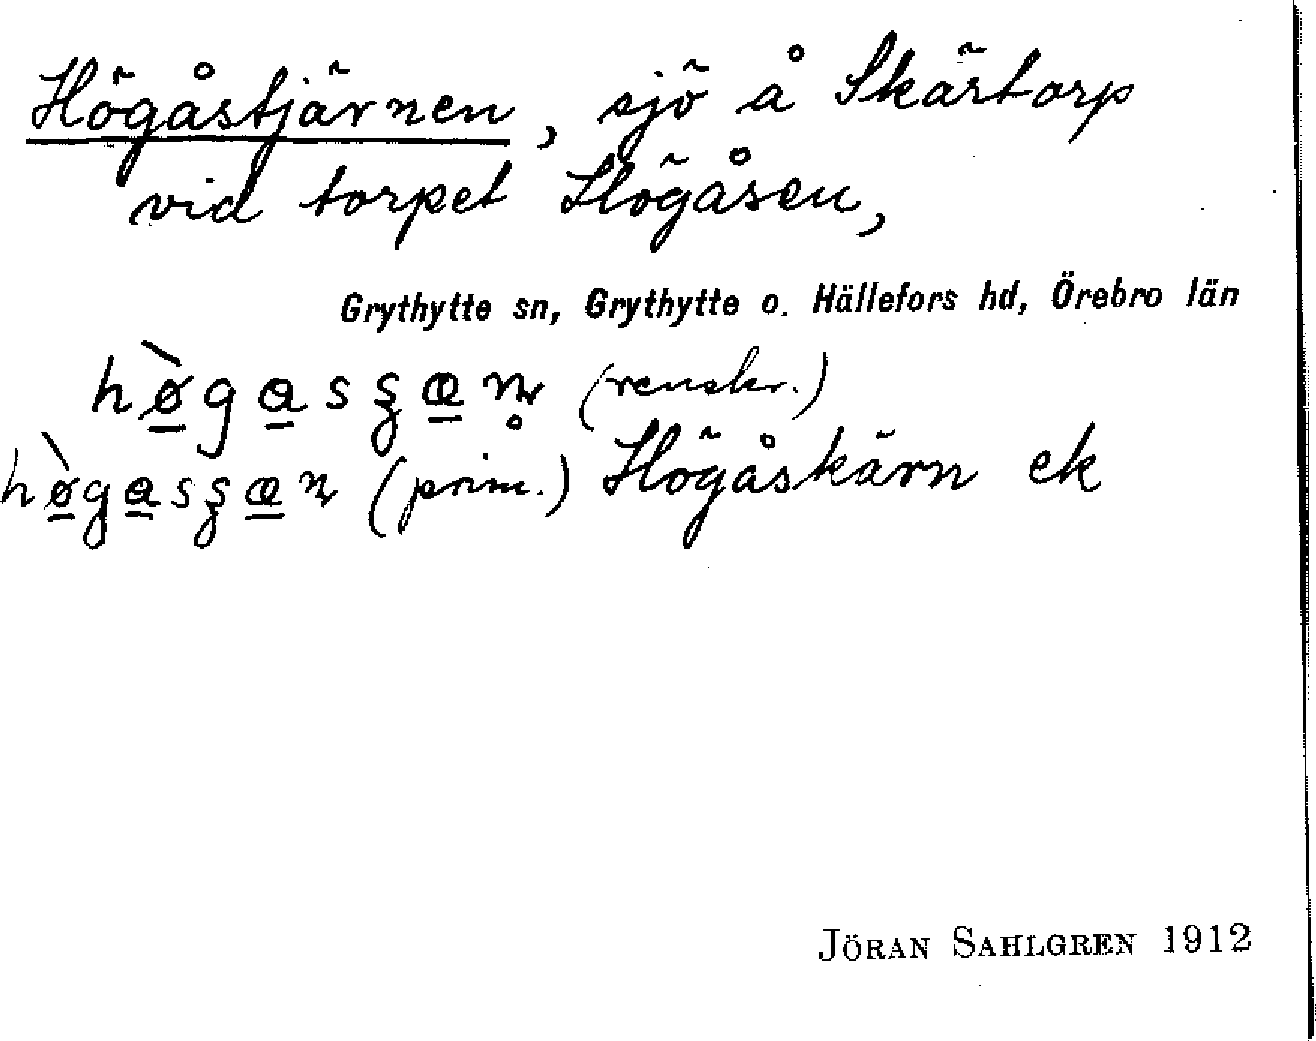 Högåstjärnen, sjö å Skärtorp
vid torpet Högåsen,
Grythytte sn, Grythytte o. Hällefors hd, Örebro län
hø̠̀ga̠sʂæ̠n̥ (renskr.)
hø̠̀ga̠sʂæ̠n (prim.) Högåskärn ek
JÖRAN SAHLGREN 1912